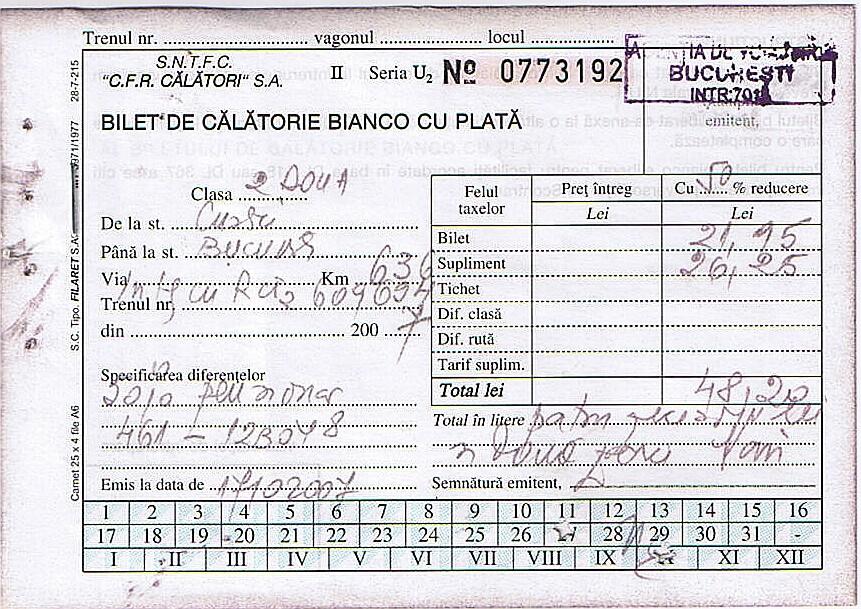 Trenul nr. .................... vagonul .................... locul ....................
S.N.T.F.C.
"C.F.R. CĂLĂTORI" S.A.
II Seria U2 Nº 0773192
BUCUREȘTI
INTR:701
emitent,
BILET DE CĂLĂTORIE BIANCO CU PLATĂ
28-7-215
S.C. Tipo. FILARET S.A.
Carnet 25 x 4 file A6
Clasa 2 DOUA
De la st.
Până la st.
Via Km 636
Trenul nr.
din .................... 200 7
Specificarea diferențelor
50% pensionar
461 - 123048
Emis la data de 17102007
Felul taxelor Preț întreg Cu 50 % reducere
Lei Lei
Bilet 21,95
Supliment 26,25
Tichet
Dif. clasă
Dif. rută
Tarif suplim.
Total lei 48,20
Total în litere patru zeci opt lei
Semnătură emitent,
1 2 3 4 5 6 7 8 9 10 11 12 13 14 15 16
17 18 19 20 21 22 23 24 25 26 27 28 29 30 31 -
I II III IV V VI VII VIII IX XI XII